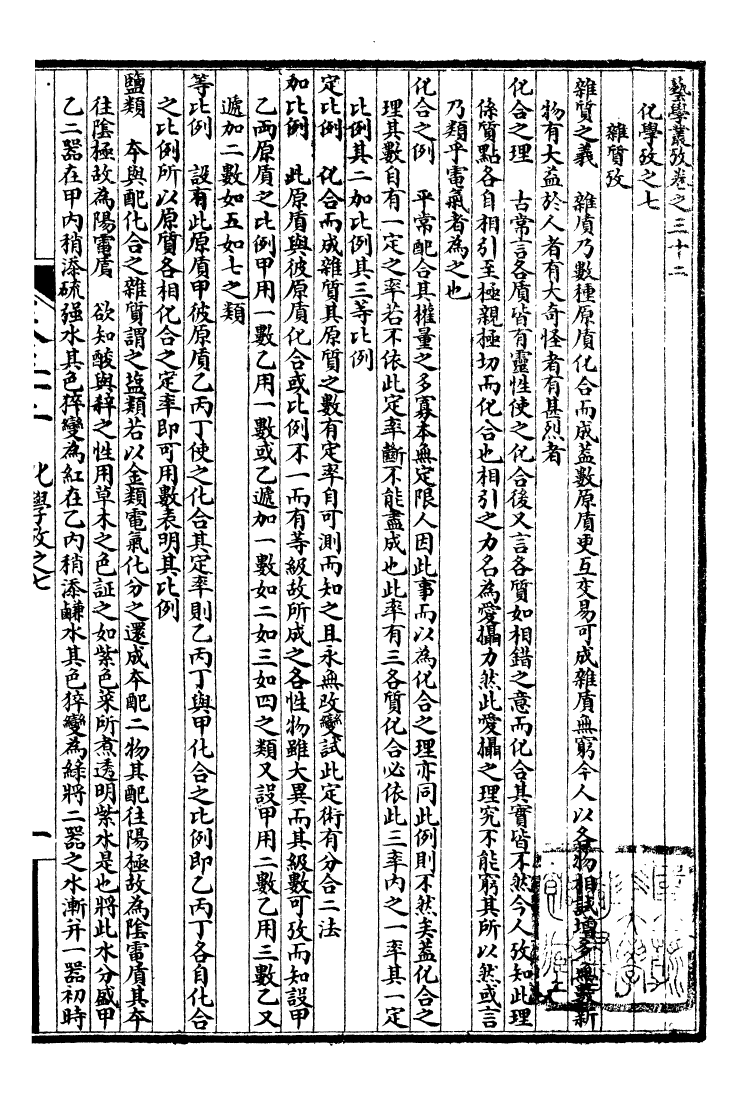 藝學叢攷卷之三十二
化學攷之七
雜質攷
雜質之義　雜質乃數種原質化合而成蓋數原質更互交易可成雜質無窮今人以各物相試增多無數新
物有大益於人者有大奇怪者有甚烈者
化合之理　古常言各質皆有靈性使之化合後又言各質如相錯之意而化合其實皆不然今人攷知此理
係質點各自相引至極親極切而化合也相引之力名為愛攝力然此愛攝之理究不能窮其所以然或言
乃類乎電氣者為之也
化合之例　平常配合其權量之多寡本無定限人因此事而以為化合之理亦同此例則不然矣蓋化合之
理其數自有一定之率若不依此定率斷不能盡成也此率有三各質化合必依此三率內之一率其一定
比例其二加比例其三等比例
定比例　化合而成雜質其原質之數有定率自可測而知之且永無改變試此定術有分合二法
加比例　此原質與彼原質化合或比例不一而有等級故所成之各性物雖大異而其級數可攷而知設甲
乙兩原質之比例甲用一數乙用一數或乙遞加一數如二如三如四之類又設甲用二數乙用三數乙又
遞加二數如五如七之類
等比例　設有此原質甲彼原質乙丙丁使之化合其定率則乙丙丁與甲化合之比例即乙丙丁各自化合
之比例所以原質各相化合之定率即可用數表明其比例
鹽類　本與配化合之雜質謂之盐類若以金類電氣化分之還成本配二物其配往陽極故為陰電質其本
往陰極故為陽電質　欲知酸與辥之性用草木之色証之如紫色菜所煮透明紫水是也將此水分盛甲
乙二器在甲內稍添硫强水其色猝變為紅在乙內稍添鹹水其色猝變為綠將二器之水漸并一器初時
化學攷之七
一